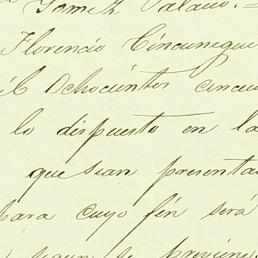 Gomez Palacio.=
Florencio Cincunegui
il Ochocientos cincu
lo dispuesto en la
que sean presenta
para cuyo fin será
segun se previene